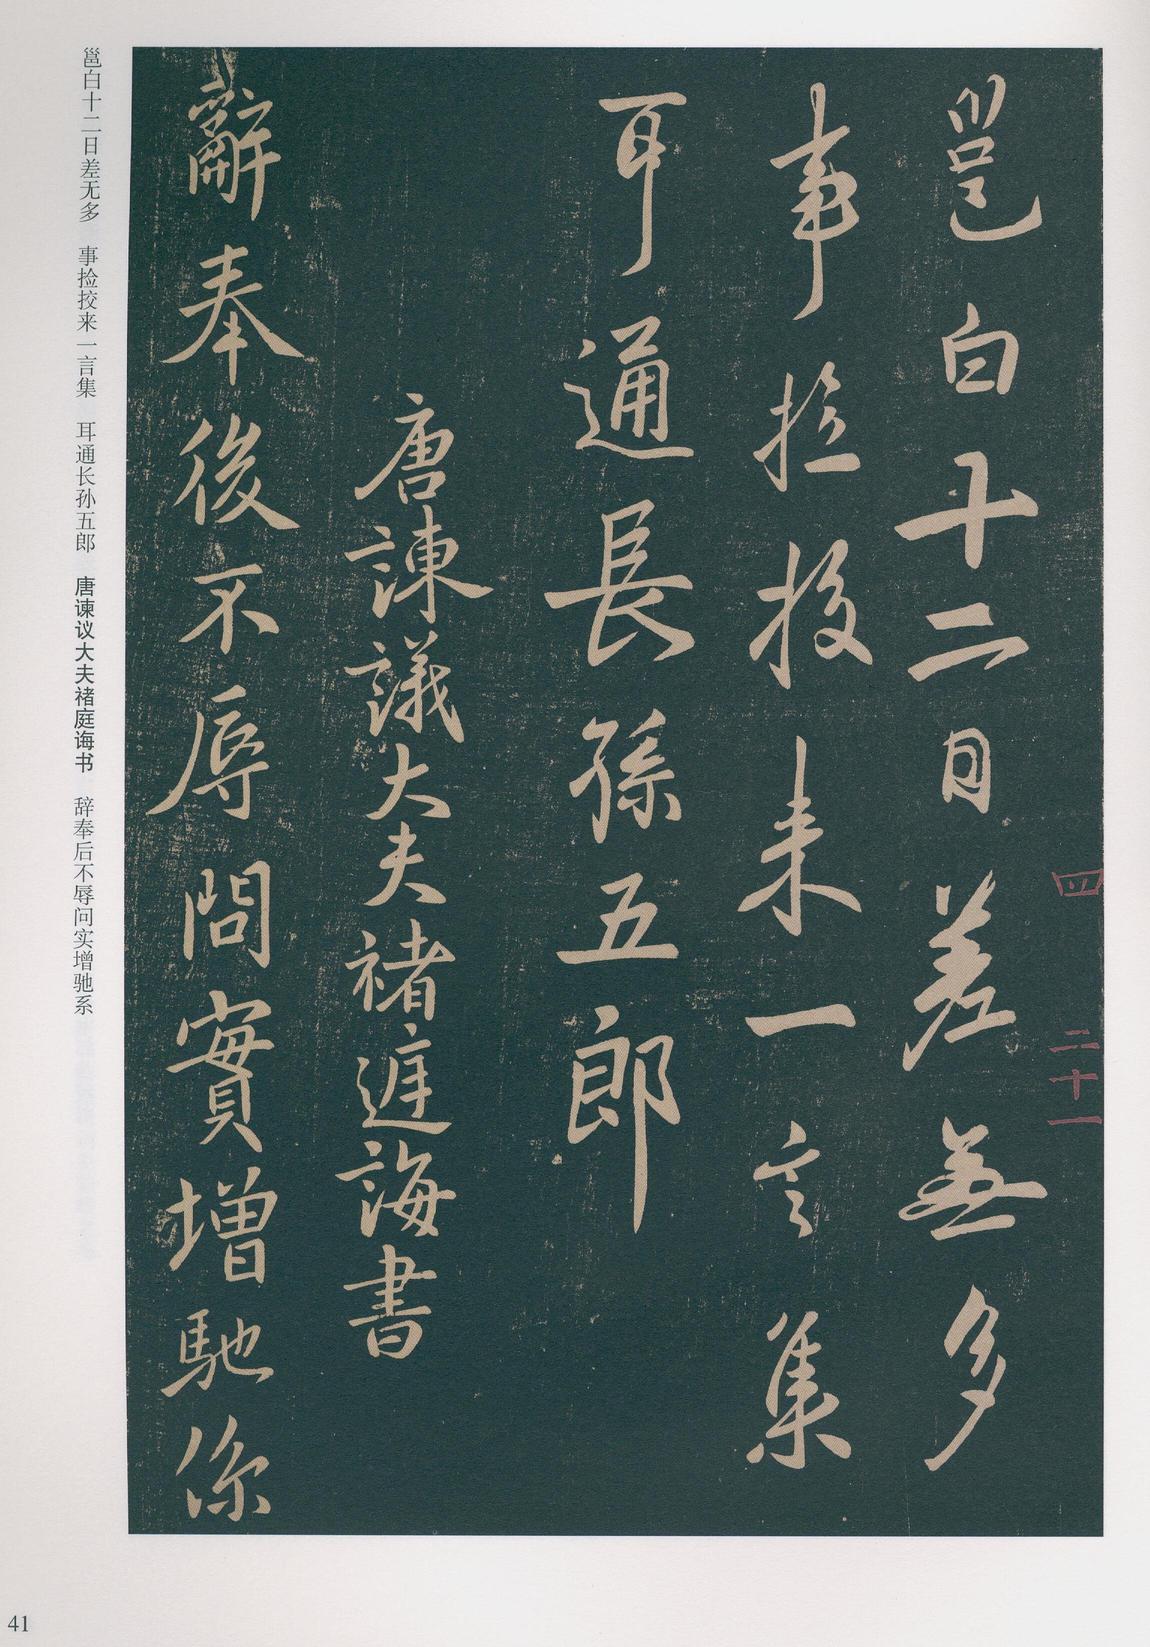 邕白十二日差無多
事捡挍来一言集
耳通長孫五郎
唐諫議大夫褚庭誨書
辭奉後不辱問實增馳係
四 二十一
邕白十二日差无多 事捡挍来一言集 耳通长孙五郎 唐谏议大夫褚庭诲书 辞奉后不辱问实增驰系
41